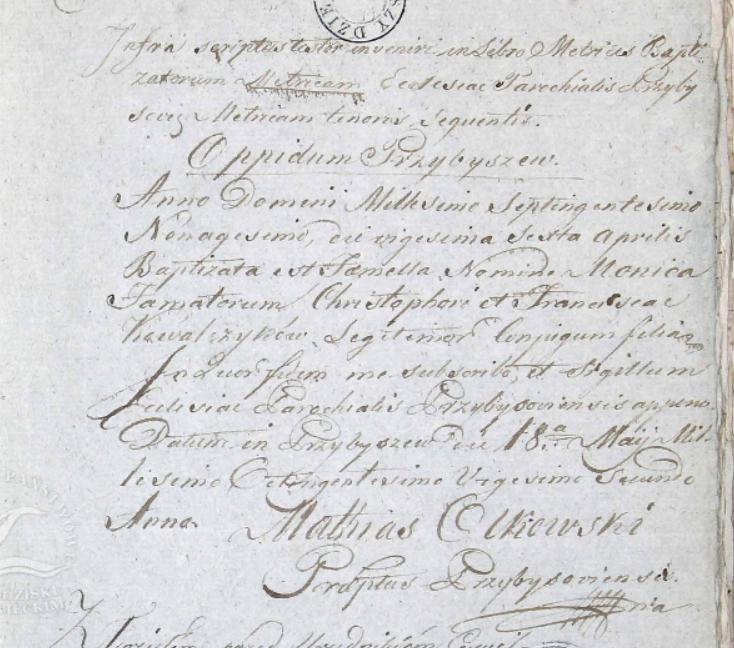 SZY DZIE
Infra scriptus testor inveniri in Libro Metrices Bapti-
zatorum Metricam Ecclesiae Parochialis Przyby
Metricam tenoris sequentis.
Oppidum Przybyszew.
Anno Domini Millesimo Septingentesimo
Nonagesimo, die vigesima Sexta Aprilis
Baptizata est Famella Nomine Monica
Famatorum Christophori et Franciscae
Kowalczyków Legitimor Conjugum filia
In quor fidem me subscribo, et Sigillum
Eclesiae Parochialis Przybysoviensis appono
Datum in Przybyszew die 18.a Maij Mil-
lesimo Octingentesimo Vigesimo Secundo
Anno. Mathias Olkowski
Przybysoviensis.
mp
przed Urzędnikiem